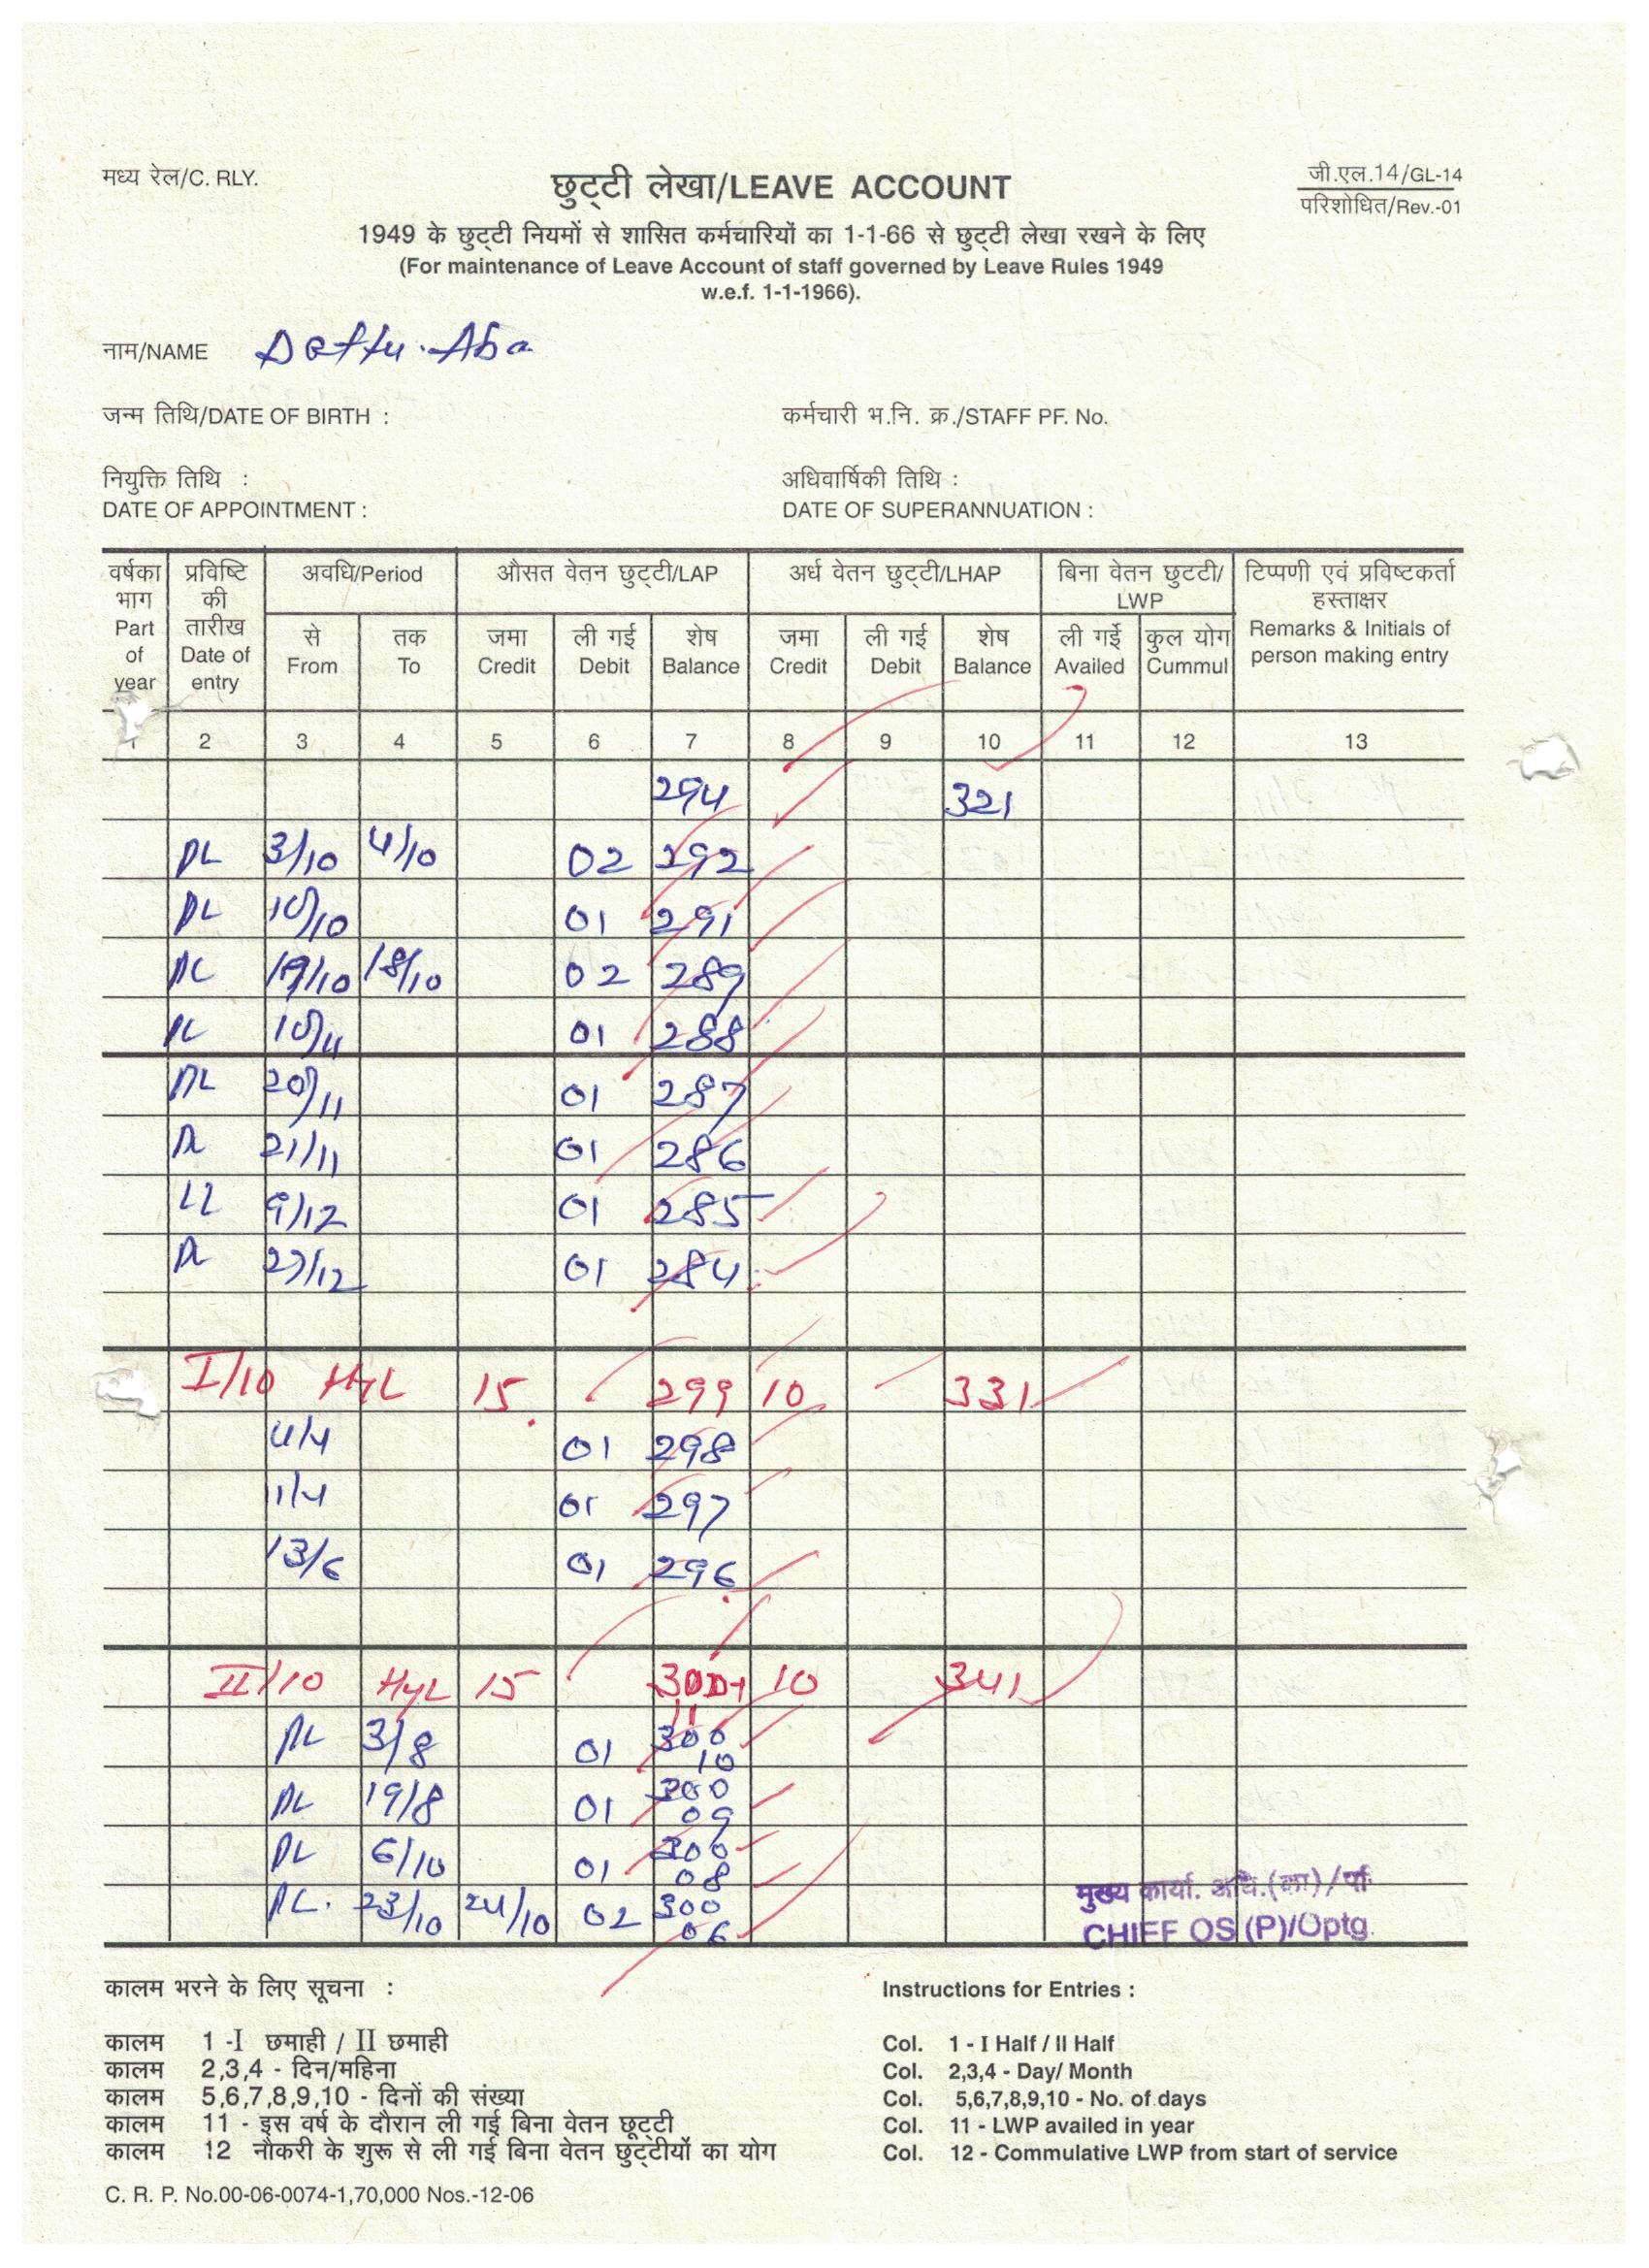 मध्य रेल/C. RLY.
छुट्टी लेखा/LEAVE ACCOUNT
जी.एल.14/GL-14
परिशोधित/Rev.-01
1949 के छुट्टी नियमों से शासित कर्मचारियों का 1-1-66 से छुट्टी लेखा रखने के लिए
(For maintenance of Leave Account of staff governed by Leave Rules 1949
w.e.f. 1-1-1966).
नाम/NAME Dattu. Aba
जन्म तिथि/DATE OF BIRTH :
कर्मचारी भ.नि. क्र./STAFF PF. No.
नियुक्ति तिथि :
DATE OF APPOINTMENT :
अधिवार्षिकी तिथि :
DATE OF SUPERANNUATION :
वर्षका भाग Part of year
प्रविष्टि की तारीख Date of entry
अवधि/Period
औसत वेतन छुट्टी/LAP
अर्ध वेतन छुट्टी/LHAP
बिना वेतन छुटटी/LWP
टिप्पणी एवं प्रविष्टकर्ता हस्ताक्षर Remarks & Initials of person making entry
से From तक To जमा Credit ली गई Debit शेष Balance जमा Credit ली गई Debit शेष Balance ली गई Availed कुल योग Cummul
1 2 3 4 5 6 7 8 9 10 11 12 13
294 321
PL 3/10 4/10 02 292
PL 10/10 01 291
PL 17/10 18/10 02 289
PL 10/11 01 288
PL 20/11 01 287
PL 21/11 01 286
LL 9/12 01 285
PL 27/12 01 284
I/10 HYL 15 299 10 331
4/4 01 298
11/4 01 297
13/6 01 296
II/10 HYL 15 300+11 10 341
PL 3/8 01 300 10
PL 19/8 01 300 09
PL 6/10 01 300 08
PL. 23/10 24/10 02 300 06
मुख्य कार्या. अधि.(का)/परि
CHIEF OS (P)/Optg.
कालम भरने के लिए सूचना :
कालम 1 -I छमाही / II छमाही
कालम 2,3,4 - दिन/महिना
कालम 5,6,7,8,9,10 - दिनों की संख्या
कालम 11 - इस वर्ष के दौरान ली गई बिना वेतन छूट्टी
कालम 12 नौकरी के शुरू से ली गई बिना वेतन छुट्टीयों का योग
Instructions for Entries :
Col. 1 - I Half / II Half
Col. 2,3,4 - Day/ Month
Col. 5,6,7,8,9,10 - No. of days
Col. 11 - LWP availed in year
Col. 12 - Commulative LWP from start of service
C. R. P. No.00-06-0074-1,70,000 Nos.-12-06